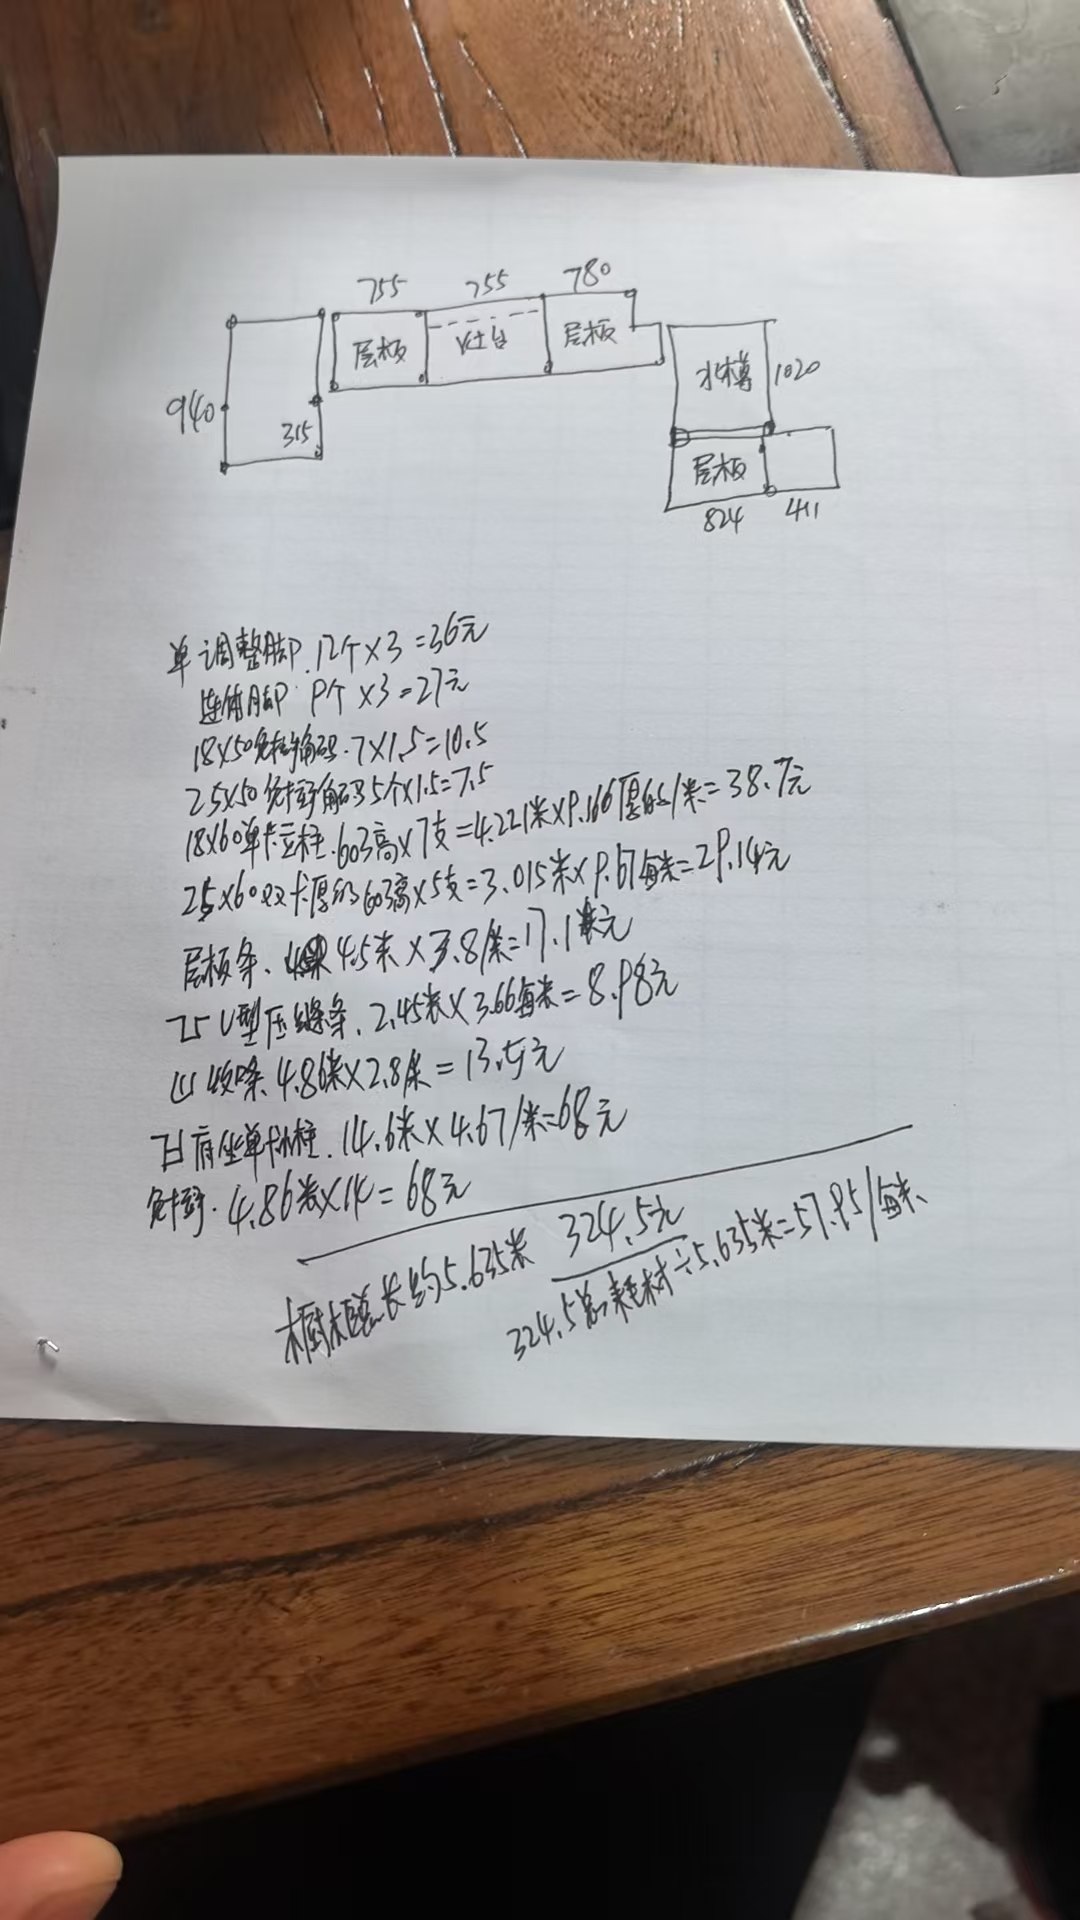 755 755 780
层板 灶台 层板
940 315
水槽 1020
层板
824 411
单调整脚.12个×3=36元
连体脚.9个×3=27元
18×50免拉弯角码.7×1.5=10.5
25×50 角码5个×1.5=7.5
18×60单卡立柱.603高×7支=4.221米×9.166厚的/米=38.7元
25×60双卡厚的603高×5支=3.015米×9.67每米=29.14元
层板条、4.5米×3.8/条=17.1元
25U型压缝条.2.45米×3.66每米=8.98元
山收口条.4.86米×2.8条=13.5元
单 柱.14.6米×4.67/米=68元
免拉弯.4.86米×14=68元
橱柜总长约5.635米 324.5元
324.5总耗材÷5.635米=57.95/每米、